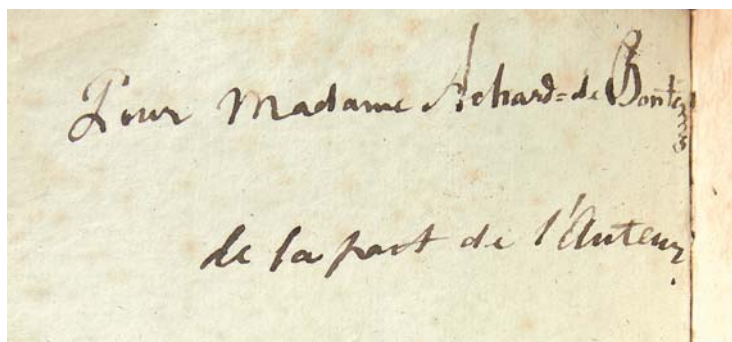 Pour Madame Achard=de Bontems
de la part de l'Auteur.